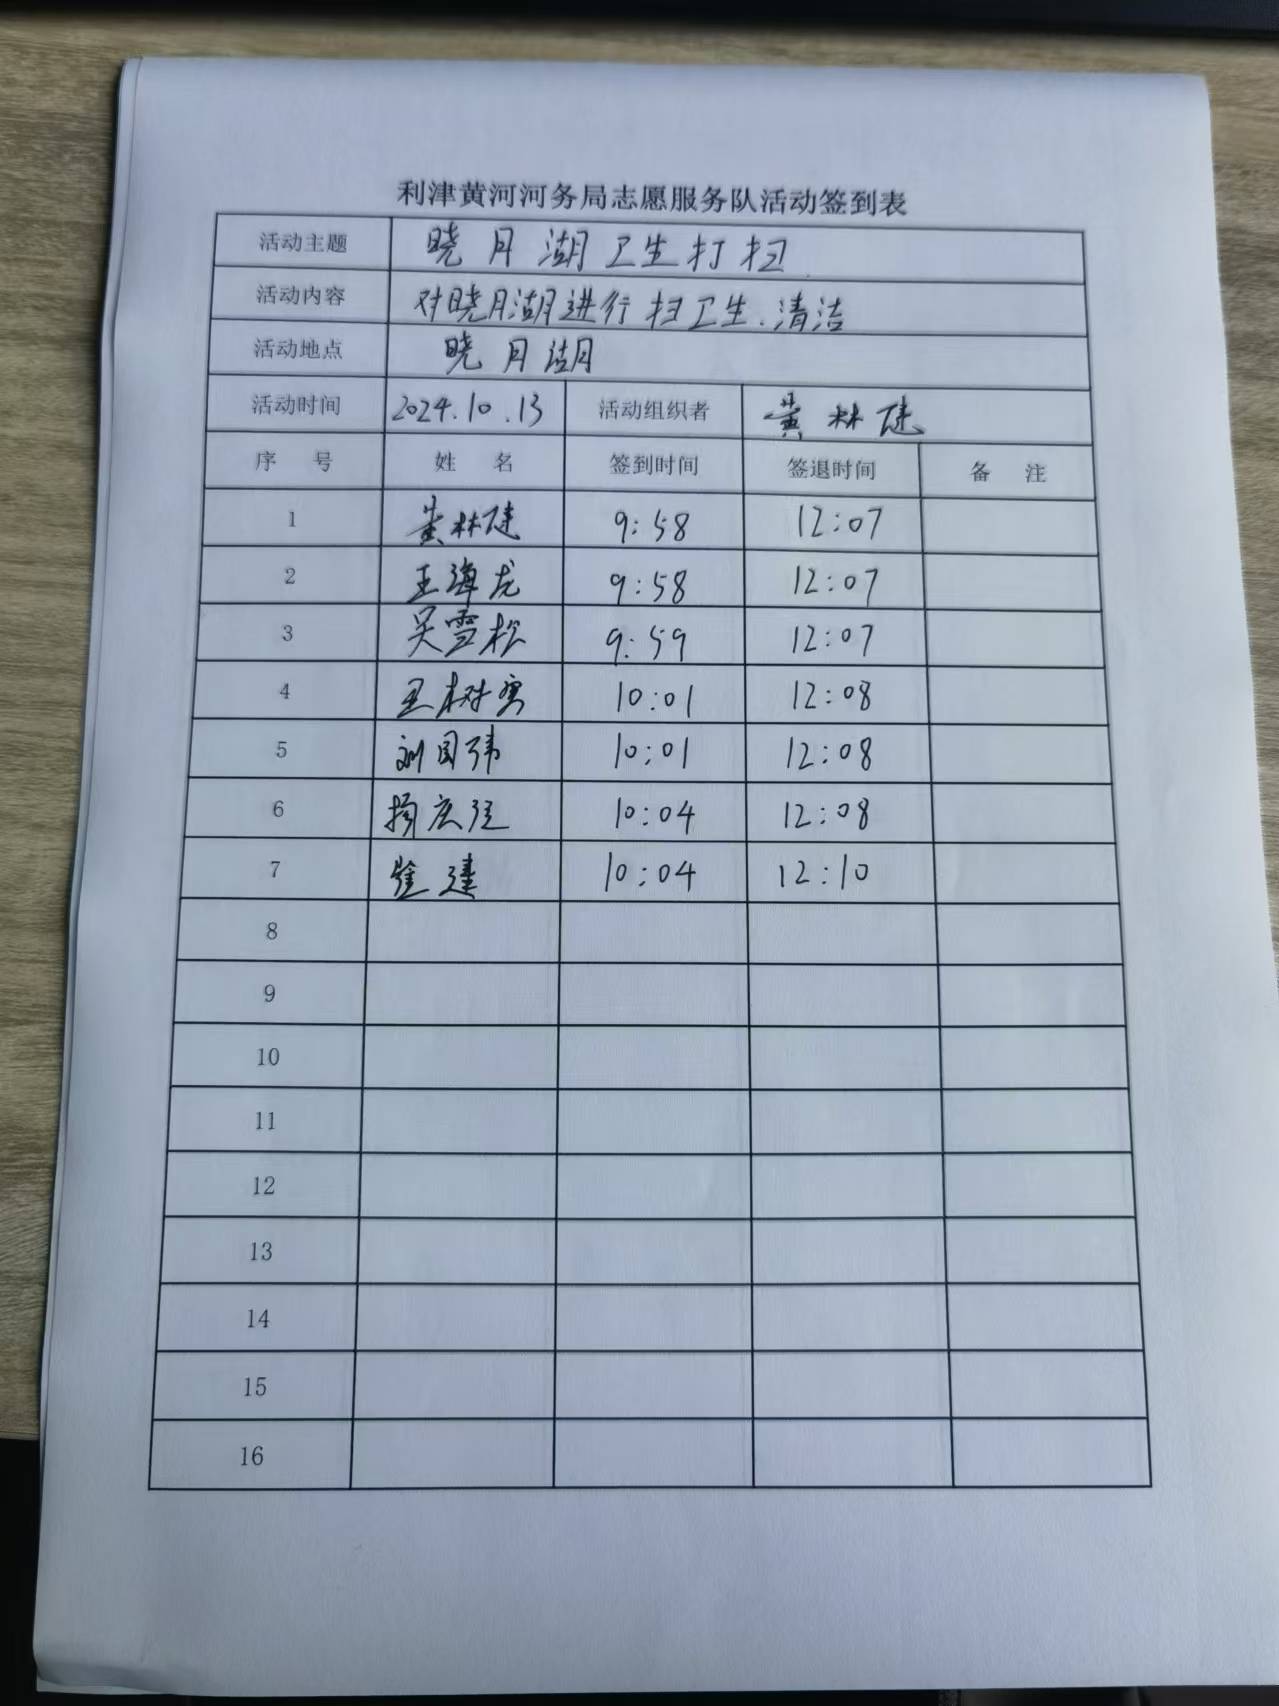 利津黄河河务局志愿服务队活动签到表
活动主题 晓月湖卫生打扫
活动内容 对晓月湖进行扫卫生、清洁
活动地点 晓月湖
活动时间 2024.10.13 活动组织者 黄林健
序 号 姓 名 签到时间 签退时间 备 注
1 黄林健 9:58 12:07
2 王海龙 9:58 12:07
3 吴雪松 9:59 12:07
4 10:01 12:08
5 刘国玮 10:01 12:08
6 10:04 12:08
7 10:04 12:10
8
9
10
11
12
13
14
15
16